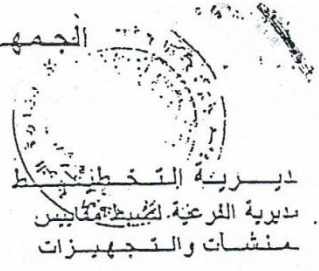 الجمهـ
ديـريـة التـخـطيـط
مديرية الفرعية لضبط مقاييس
منشات والـتـجـهـيـزات